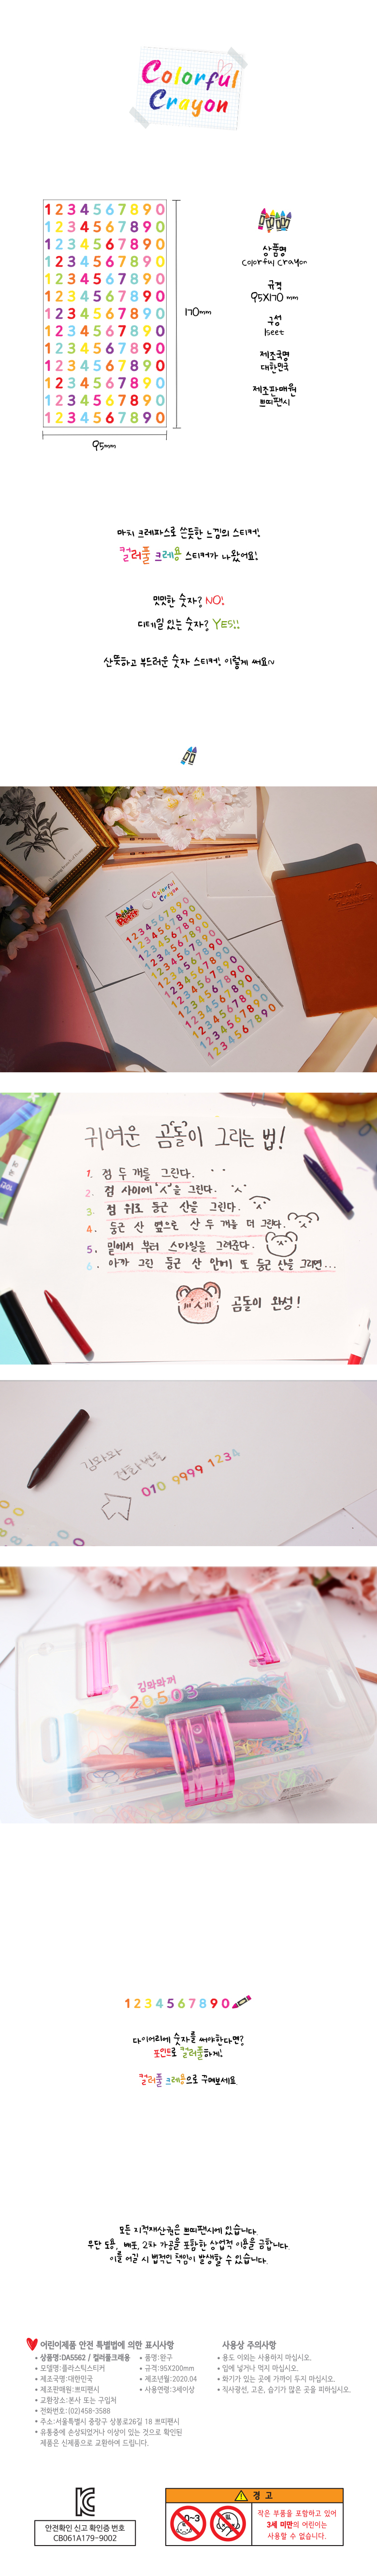 Colorful
Crayon
1 2 3 4 5 6 7 8 9 0
1 2 3 4 5 6 7 8 9 0
1 2 3 4 5 6 7 8 9 0
1 2 3 4 5 6 7 8 9 0
1 2 3 4 5 6 7 8 9 0
1 2 3 4 5 6 7 8 9 0
1 2 3 4 5 6 7 8 9 0
1 2 3 4 5 6 7 8 9 0
1 2 3 4 5 6 7 8 9 0
1 2 3 4 5 6 7 8 9 0
1 2 3 4 5 6 7 8 9 0
1 2 3 4 5 6 7 8 9 0
1 2 3 4 5 6 7 8 9 0
170mm
95mm
상품명
Colorful Crayon
규격
95X170 mm
구성
1seet
제조국명
대한민국
제조판매원
쁘띠팬시
마치 크레파스로 쓴듯한 느낌의 스티커!
컬러풀 크레용 스티커가 나왔어요!
밋밋한 숫자? NO!
디테일 있는 숫자? YES!!
산뜻하고 부드러운 숫자 스티커! 이렇게 써요~
Colorful
Crayon
귀여운 곰돌이 그리는 법!
1. 점 두 개를 그린다.
2. 점 사이에 'ㅅ'을 그린다.
3. 점 위로 둥근 산을 그린다.
4. 둥근 산 옆으로 산 두 개를 더 그린다.
5. 밑에서 부터 스마일을 그려준다.
6. 아까 그린 둥근 산 안에 또 둥근 산을 그리면...
곰돌이 완성!
김와와
전화번호
010 9999 1234
김와와꺼
20503
1 2 3 4 5 6 7 8 9 0
다이어리에 숫자를 써야한다면?
포인트로 컬러풀하게!
컬러풀 크레용으로 꾸며보세요
모든 지적재산권은 쁘띠팬시에 있습니다.
무단 도용, 배포, 2차 가공을 포함한 상업적 이용을 금합니다.
이를 어길 시 법적인 책임이 발생할 수 있습니다.
어린이제품 안전 특별법에 의한 표시사항
• 상품명:DA5562 / 컬러풀크레용
• 품명:완구
• 모델명:플라스틱스티커
• 규격:95X200mm
• 제조국명:대한민국
• 제조년월:2020.04
• 제조판매원:쁘띠팬시
• 사용연령:3세이상
• 교환장소:본사 또는 구입처
• 전화번호:(02)458-3588
• 주소:서울특별시 중랑구 상봉로26길 18 쁘띠팬시
• 유통중에 손상되었거나 이상이 있는 것으로 확인된
제품은 신제품으로 교환하여 드립니다.
사용상 주의사항
• 용도 이외는 사용하지 마십시오.
• 입에 넣거나 먹지 마십시오.
• 화기가 있는 곳에 가까이 두지 마십시오.
• 직사광선, 고온, 습기가 많은 곳을 피하십시오.
안전확인 신고 확인증 번호
CB061A179-9002
경 고
0~3
작은 부품을 포함하고 있어
3세 미만의 어린이는
사용할 수 없습니다.